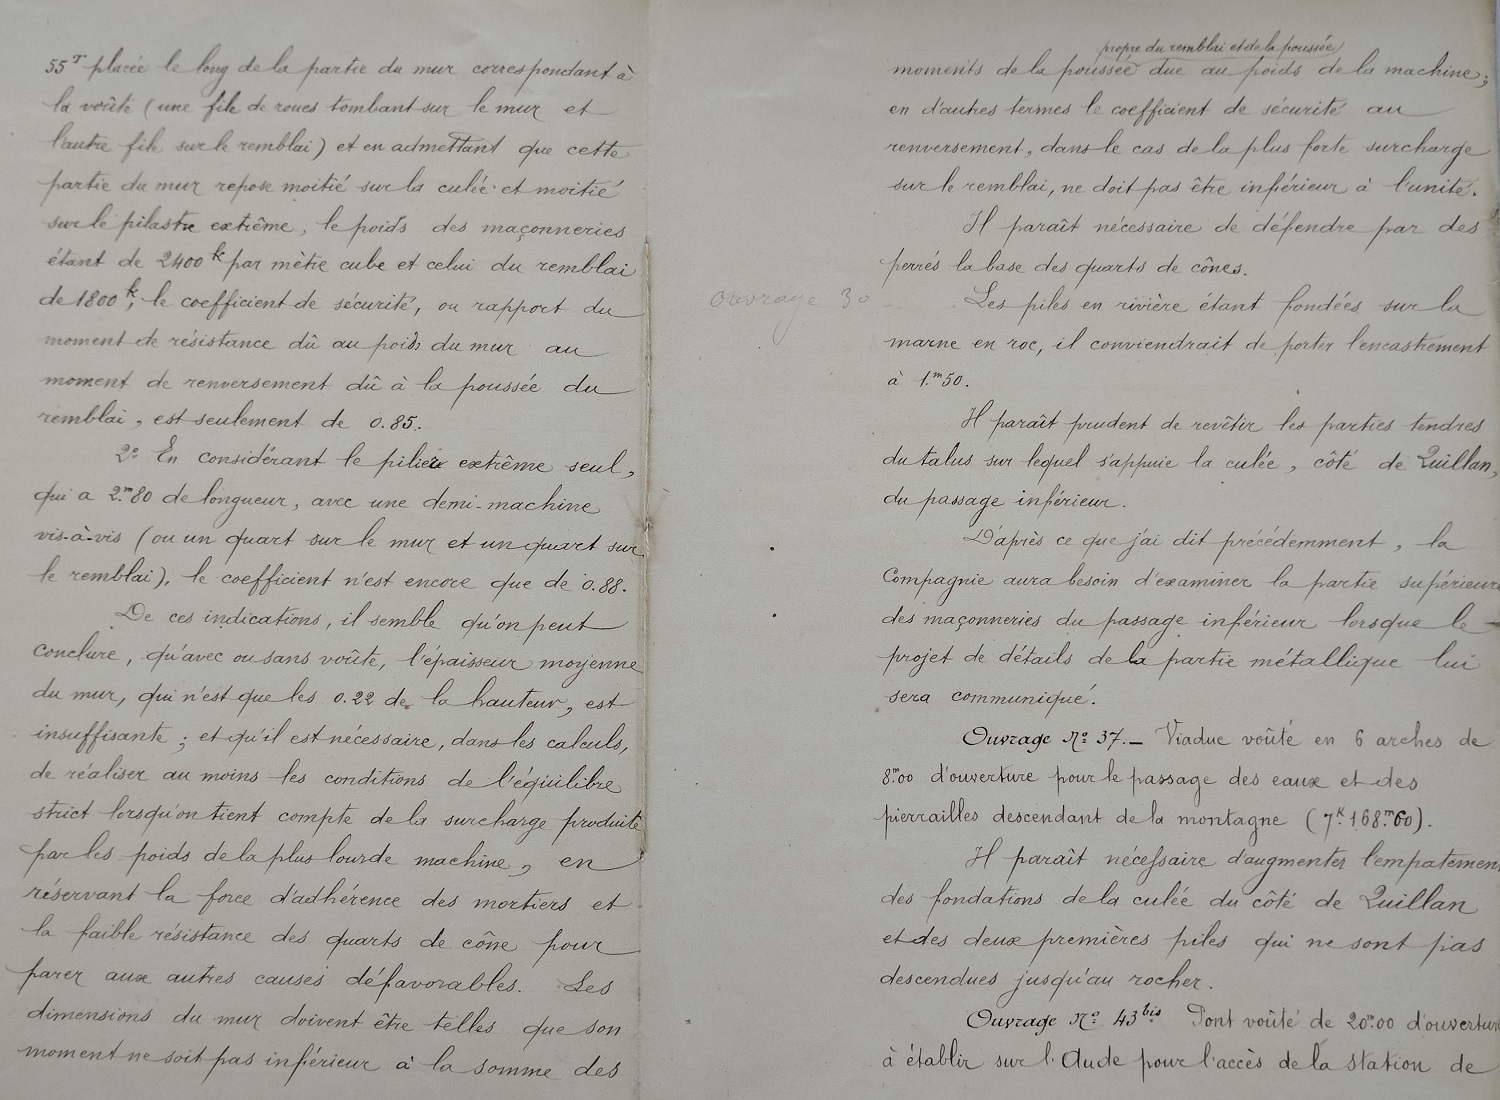 55T placée le long de la partie du mur correspondant à
la voûte (une file de roues tombant sur le mur et
l'autre file sur le remblai) et en admettant que cette
partie du mur repose moitié sur la culée et moitié
sur le pilastre extrême, le poids des maçonneries
étant de 2400k par mètre cube et celui du remblai
de 1800k, le coefficient de sécurité, ou rapport du
moment de résistance dû au poids du mur au
moment de renversement dû à la poussée du
remblai, est seulement de 0.85.
2º En considérant le pilier extrême seul,
qui a 2.m80 de longueur, avec une demi-machine
vis-à-vis (ou un quart sur le mur et un quart sur
le remblai), le coefficient n'est encore que de 0.88.
De ces indications, il semble qu'on peut
conclure, qu'avec ou sans voûte, l'épaisseur moyenne
du mur, qui n'est que les 0.22 de la hauteur, est
insuffisante ; et qu'il est nécessaire, dans les calculs,
de réaliser au moins les conditions de l'équilibre
strict lorsqu'on tient compte de la surcharge produite
par les poids de la plus lourde machine, en
réservant la force d'adhérence des mortiers et
la faible résistance des quarts de cône pour
parer aux autres causes défavorables. Les
dimensions du mur doivent être telles que son
moment ne soit pas inférieur à la somme des
ouvrage 30
propre du remblai et de la poussée
moments de la poussée due au poids de la machine ;
en d'autres termes le coefficient de sécurité au
renversement, dans le cas de la plus forte surcharge
sur le remblai, ne doit pas être inférieur à l'unité.
Il paraît nécessaire de défendre par des
perrés la base des quarts de cônes.
Les piles en rivière étant fondées sur la
marne en roc, il conviendrait de porter l'encastrement
à 1.m50.
Il paraît prudent de revêtir les parties tendres
du talus sur lequel s'appuie la culée, côté de Quillan,
du passage inférieur.
D'après ce que j'ai dit précédemment, la
Compagnie aura besoin d'examiner la partie supérieure
des maçonneries du passage inférieur lorsque le
projet de détails de la partie métallique lui
sera communiqué.
Ouvrage Nº 37._ Viaduc voûté en 6 arches de
8m.00 d'ouverture pour le passage des eaux et des
pierrailles descendant de la montagne (7k.168m.60).
Il paraît nécessaire d'augmenter l'empatement
des fondations de la culée du côté de Quillan
et des deux premières piles qui ne sont pas
descendues jusqu'au rocher.
Ouvrage Nº 43bis Pont voûté de 20m.00 d'ouverture
à établir sur l'Aude pour l'accès de la station de